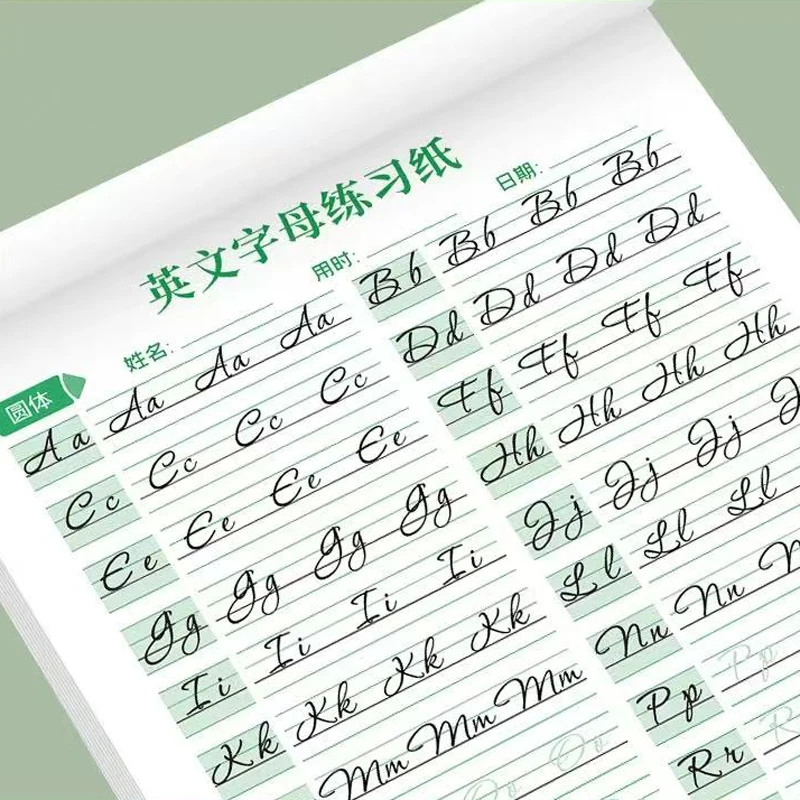 英文字母练习纸
姓名: 用时: 日期:
圆体
Aa Aa Aa Aa Bb Bb Bb Bb
Cc Cc Cc Cc Dd Dd Dd Dd
Ee Ee Ee Ee Ff Ff Ff Ff
Gg Gg Gg Gg Hh Hh Hh Hh
Ii Ii Ii Ii Jj Jj Jj J
Kk Kk Kk Kk Ll Ll Ll
Mm Mm Mm Nn Nn
Oo Oo Pp Pp
Rr R